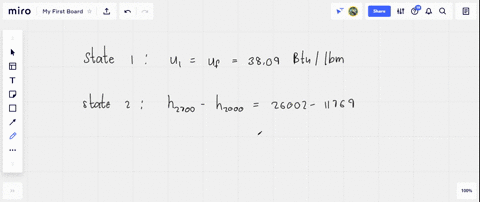 miro My First Board Share
State 1 : u₁ = uf = 38.09 Btu/lbm
state 2 : h₂₇₀₀ - h₂₀₀₀ = 26002 - 11769
100%